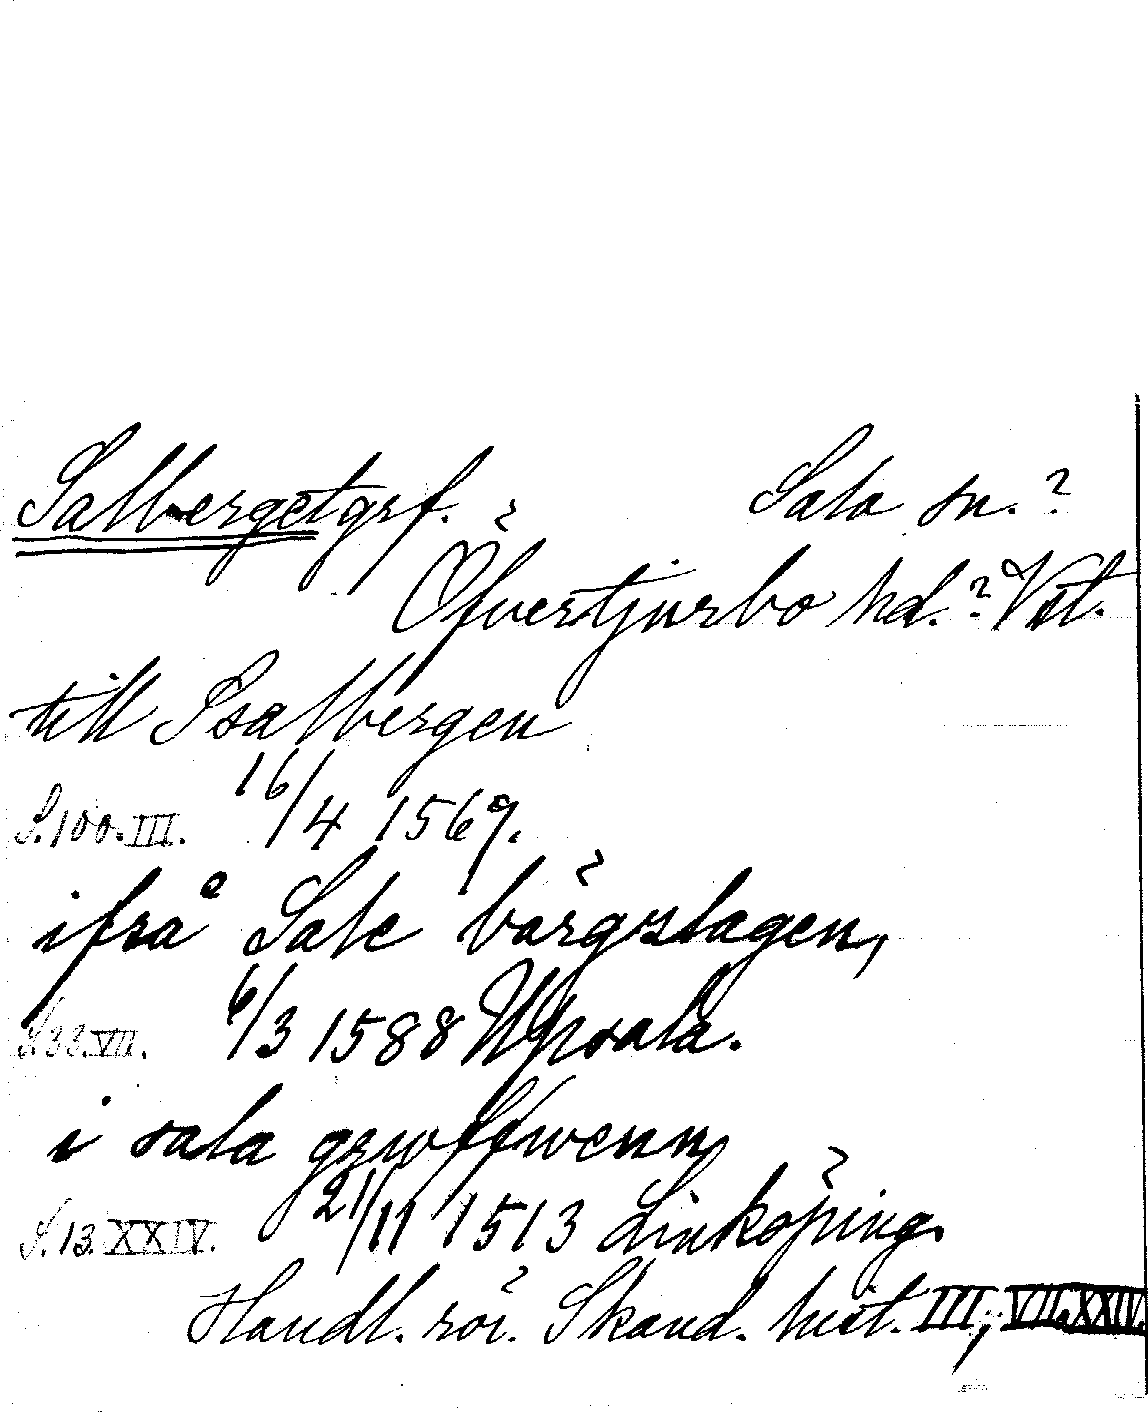 Salbergetgrf. Sala sn.?
Öfvertjurbo hd.? Vstl.
till Ssalbergen
S.100.III. 16/4 1569.
ifrå Sale bärgslagen,
S.33.VII. 6/3 1588 Upsala.
i sala gruffwenn
S.13.XXIV. 21/11 1513 Linköping.
Handl. rör. Skand. hist. III, VII, XXIV.